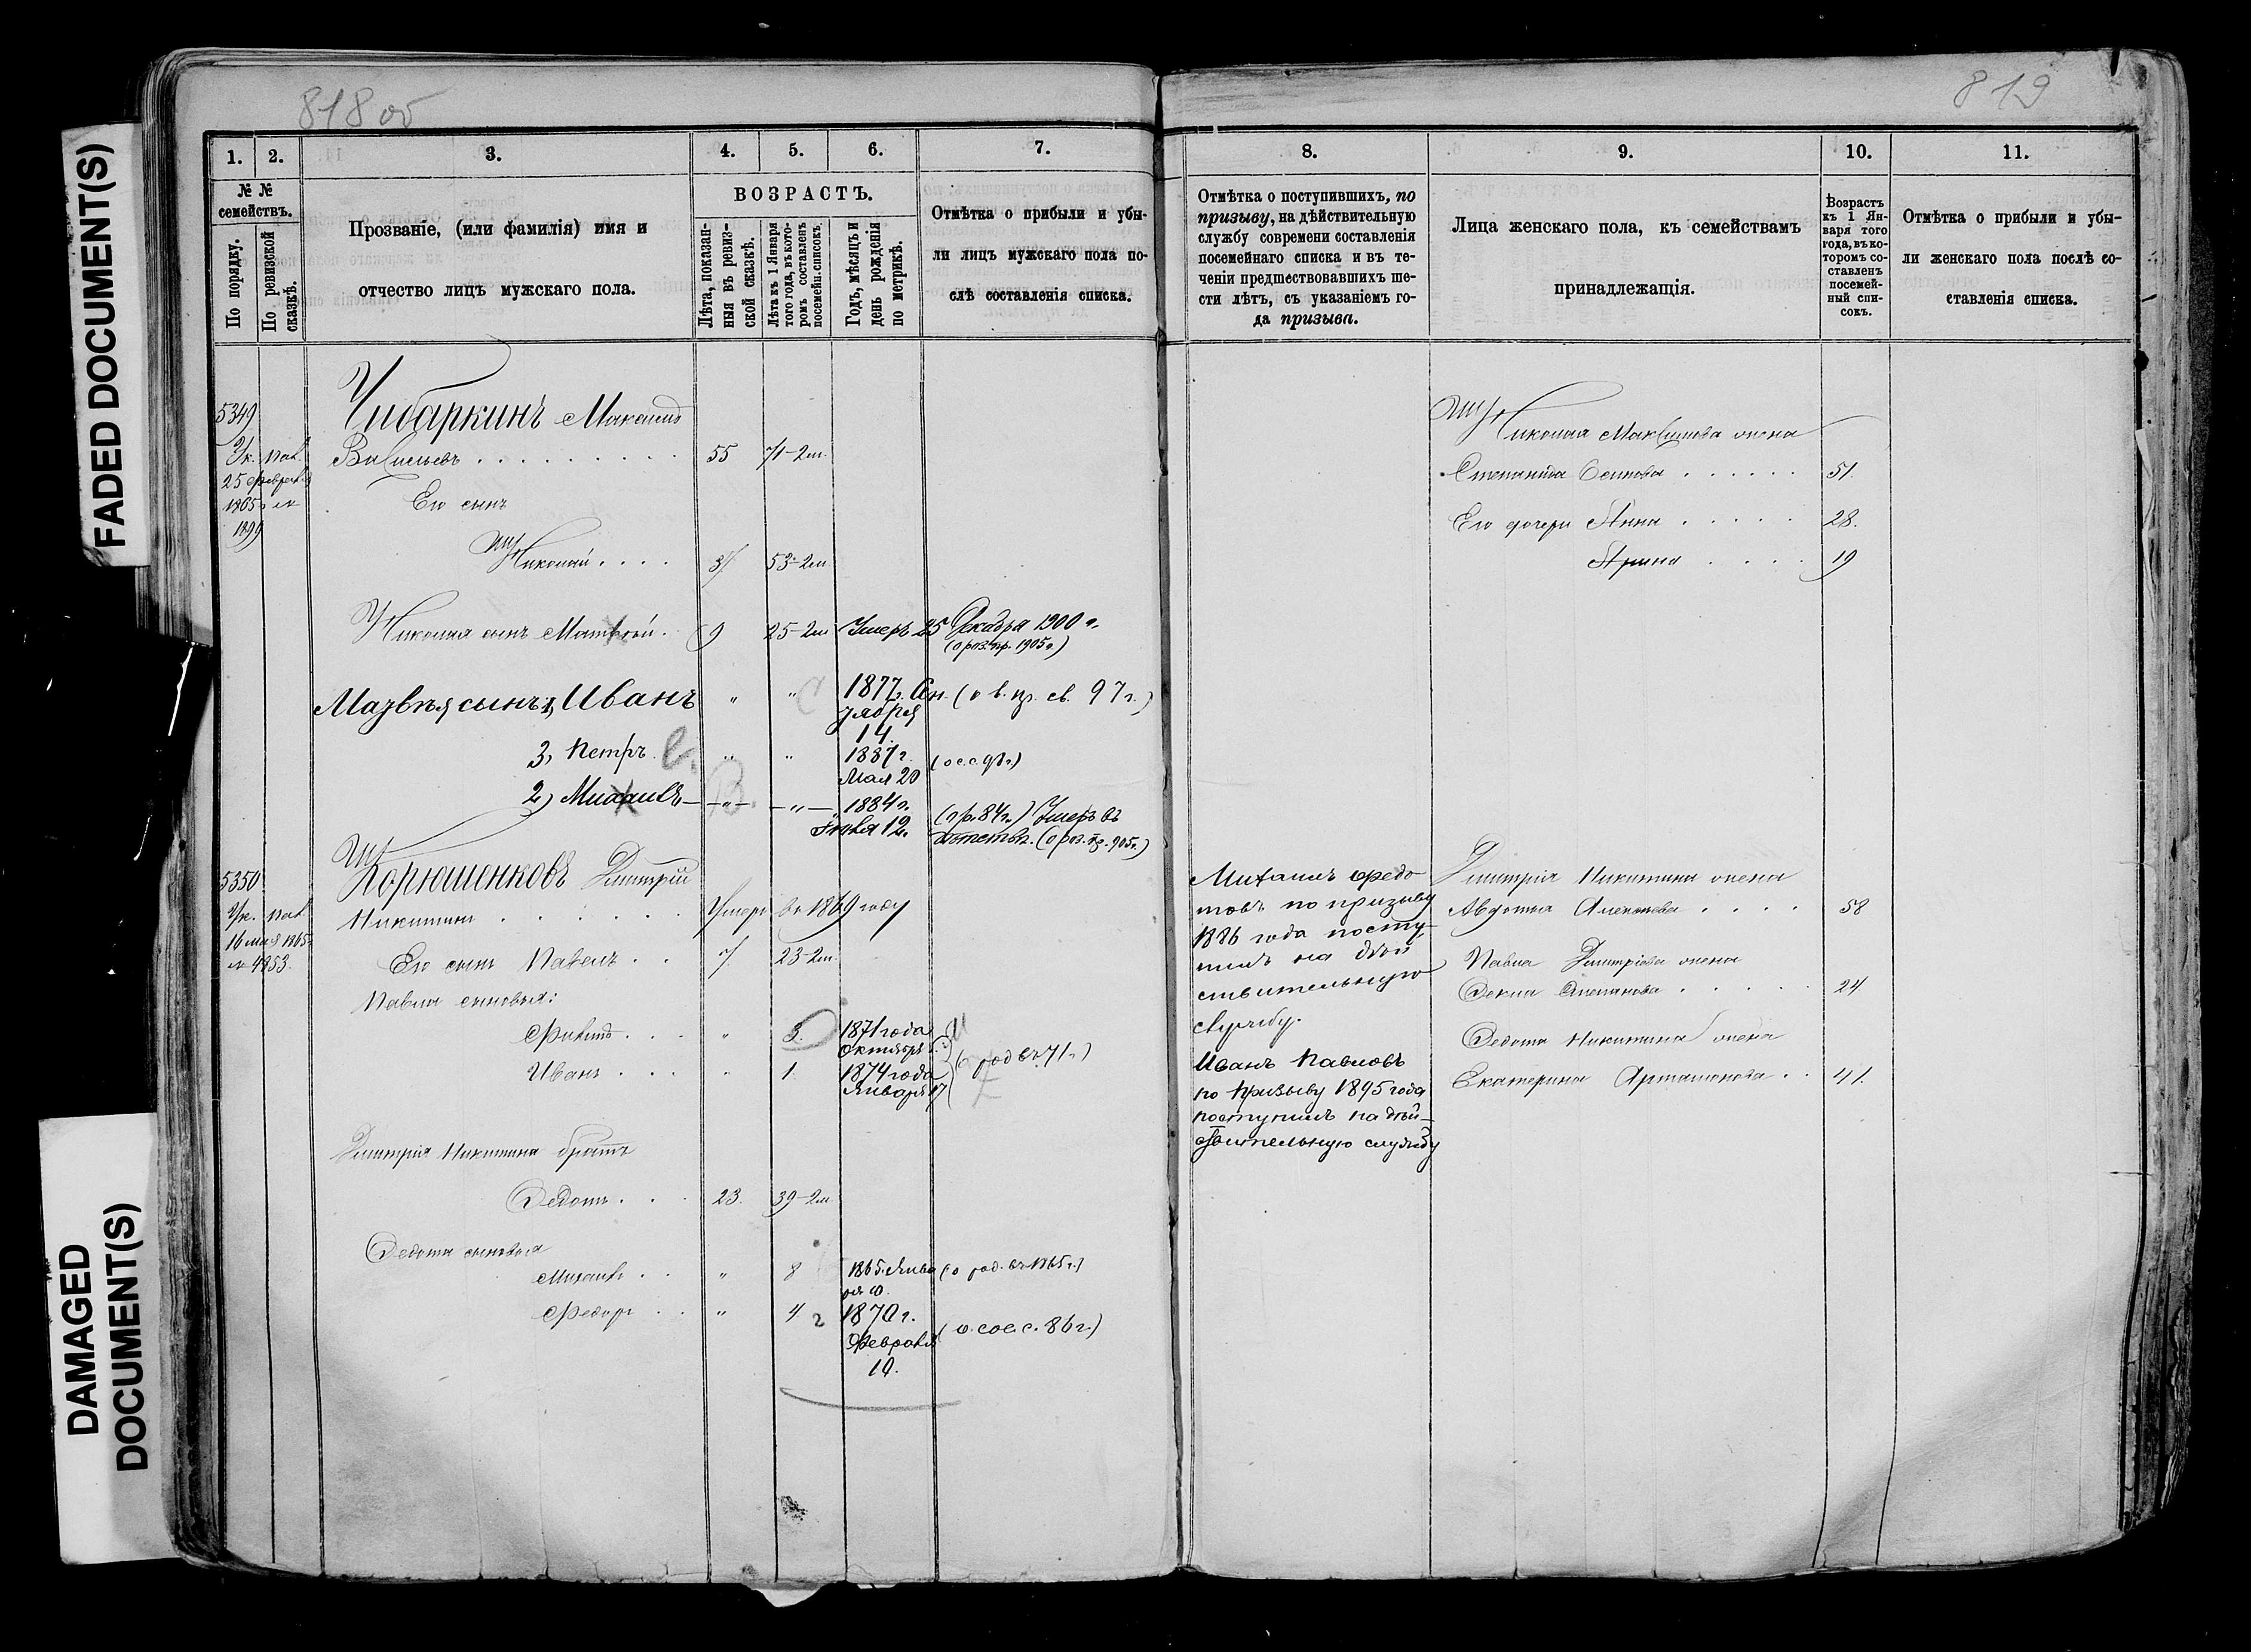 FADED DOCUMENT(S)
DAMAGED
DOCUMENT(S)
818 об
1.
2.
3.
4.
5.
6.
7.
№ №
семействъ.
По порядку.
По ревизской
сказкѣ.
Прозваніе, (или фамилія) имя и
отчество лицъ мужскаго пола.
ВОЗРАСТЪ.
Лѣта, показан-
ныя въ ревиз-
ской сказкѣ.
Лѣта къ 1 Января
того года, въ кото-
ромъ составленъ
посемейн. списокъ.
Годъ, мѣсяцъ и
день рожденія
по метрикѣ.
Отмѣтка о прибыли и убы-
ли лицъ мужскаго пола по-
слѣ составленія списка.
5349
Ук. пал.
25 февраля
1865 №
1899
Чибаркинъ Максимъ
Васильевъ 55 71-2м.
Его сынъ
Николай 37 53-2м
Николая сынъ Матвѣй. 9 25-2м Умеръ 25 Декабря 1900 г.
(о раз. пр. 1905 г)
Матвѣя сынъ 1, Иванъ " " 1877 г. Сен-
тября
14.
3, Петръ " " 1887 г.
Мая 20
2) Михаилъ " " 1884 г.
Янва 12.
(пр. 84 г.) Умеръ въ
дѣтствѣ. (о раз. пр. 905 г.)
5350
Ук. пал.
16 мая 1865
№ 4253.
Корюшенковъ Дмитрій
Никитинъ Умеръ въ 1869 году
Его сынъ Павелъ 7 23-2м
Павла сыновья:
" 3. 1871 года
Октября
Иванъ " 1. 1874 года
Января 17
(о род въ 71 г)
Дмитрія Никитина братъ
Федотъ 23. 39-2м
Федота сыновья
Михаилъ " 8 1865 Янва
ря 10.
(о род. въ 1865 г.)
Федоръ " 4 2 1870 г.
Февраля
10.
(о сос. с. 86 г.)
819
8.
9.
10.
11.
Отмѣтка о поступившихъ, по
призыву, на дѣйствительную
службу современи составленія
посемейнаго списка и въ те-
ченіи предшествовавшихъ ше-
сти лѣтъ, съ указаніемъ го-
да призыва.
Лица женскаго пола, къ семействамъ
принадлежащія.
Возрастъ
къ 1 Ян-
варя того
года, въ ко-
торомъ со-
ставленъ
посемей-
ный спи-
сокъ.
Отмѣтка о прибыли и убы-
ли женскаго пола послѣ со-
ставленія списка.
Николая Максимова жена
Степанида Осипова 51.
Его дочери Анна 28.
Арина 19
Михаилъ Федо-
товъ по призыву
1886 года посту-
пилъ на дѣй
ствительную
службу.
Иванъ Павловъ
по призыву 1895 года
поступилъ на дѣй-
ствительную службу
Дмитрія Никитина жена
Авдотья 58
Павла Дмитріева жена
Фекла Степанова 24
Федота Никитина жена
Екатерина Артамонова 41.